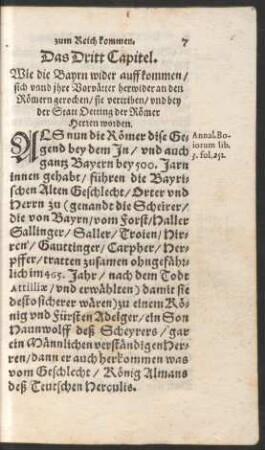 zum Reich kommen. 7
Das Dritt Capitel.
Wie die Bayrn wider auff kommen /
sich vnnd jhre Vorvätter herwider an den
Römern gerochen / sie vertriben / vnd bey
der Statt Oetting der Römer
Herren worden.
ALS nun die Römer dise Ge-
gend bey dem In / vnd auch
gantz Bayern bey 500. Jarn
innen gehabt / führen die Bayri-
schen Alten Geschlecht / Orter vnd
Herrn zu (genandt die Scheirer /
die von Bayrn / vom Forst / Haller
Sallinger / Saller / Troien / Hir-
ren / Gauttinger / Carpher / Her-
pffer / tratten zusamen ohngefähr-
lich im 465. Jahr / nach dem Todt
Attillæ / vnd erwählten) damit sie
desto sicherer wären) zu einem Kö-
nig vnd Fürsten Adelger / ein Son
Haunwolff deß Scheyrers / gar
ein Männlichen verständigen Her-
ren / dann er auch herkommen was
vom Geschlecht / König Almans
deß Teutschen Herculis.
Annal. Bo-
iorum lib.
3. fol. 251.